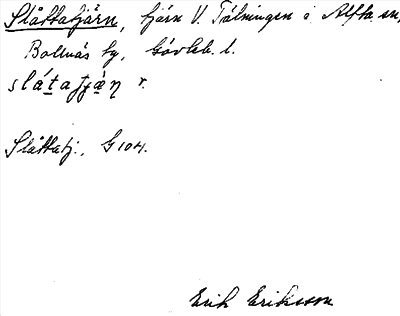 Slåttatjärn, tjärn V. Tälningen i Alfta sn,
Bollnäs kg, Gävleb. l.
slǻtatjä̀ṇ r.
Slåttatj., G 104.
Erik Eriksson